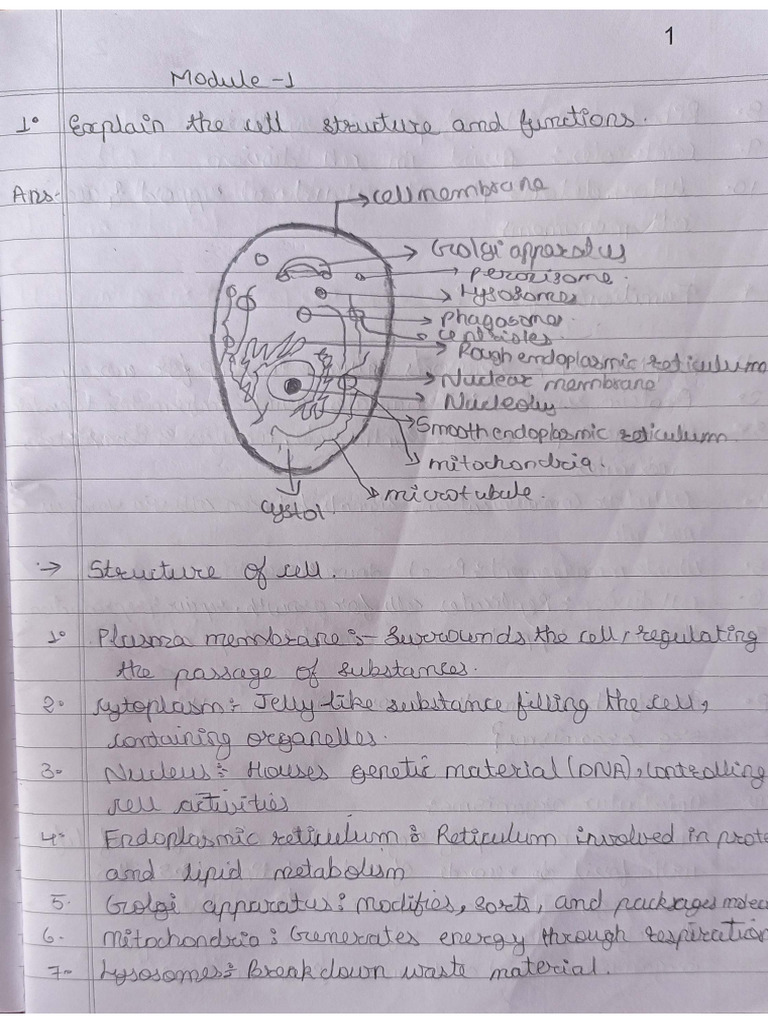 1
Module -1
1° Explain the cell structure and functions.
Ans-
cell membrane
Golgi apparatus
peroxisome.
Lysosomes
phagosomes
centrioles
Rough endoplasmic reticulum
Nuclear membrane
Nucleolus
Smooth endoplasmic reticulum
mitochondria.
microtubule.
cystol
→ Structure of cell.
1° Plasma membrane :- Surrounds the cell, regulating
the passage of substances.
2- Cytoplasm : Jelly-like substance filling the cell,
containing organelles.
3- Nucleus : Houses genetic material (DNA), controlling
cell activities
4- Endoplasmic reticulum : Reticulum involved in prote
and lipid metabolism
5- Golgi apparatus : modifies, sorts, and packages molec
6- Mitochondria : Generates energy through respiration
7- Lysosomes : Breakdown waste material.